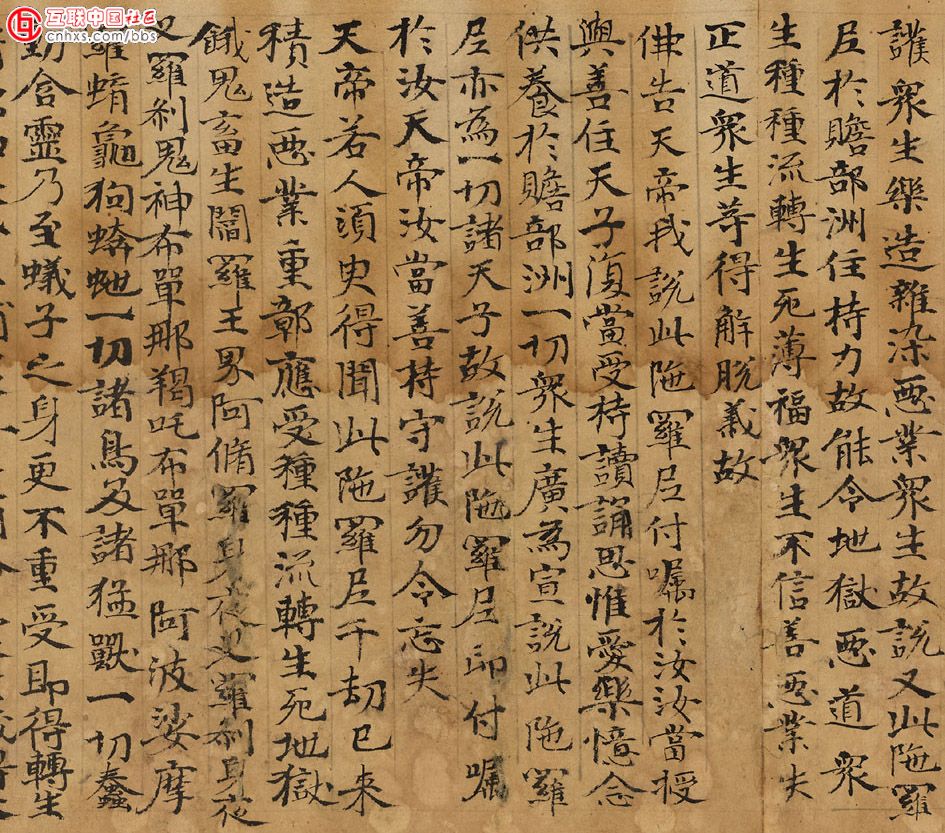 互联中国社区
cnhxs.com/bbs
護衆生樂造雜染惡業衆生故說又此陁羅
尼於贍部洲住持力故能令地獄惡道衆
生種種流轉生死薄福衆生不信善惡業失
正道衆生等得解脫義故
佛告天帝我說此陁羅尼付囑於汝汝當授
與善住天子復當受持讀誦思惟愛樂憶念
供養於贍部洲一切衆生廣為宣說此陁羅
尼亦為一切諸天子故說此陁羅尼印付囑
於汝天帝汝當善持守護勿令忘失
天帝若人須臾得聞此陁羅尼千劫已来
積造惡業重鄣應受種種流轉生死地獄
餓鬼畜生閻羅王界阿脩羅身夜叉羅刹身夜
叉羅刹鬼神布單那羯吒布單那阿波娑摩
羅蜎龜狗蟒虵一切諸鳥及諸猛獸一切蠢
動含靈乃至蟻子之身更不重受即得轉生